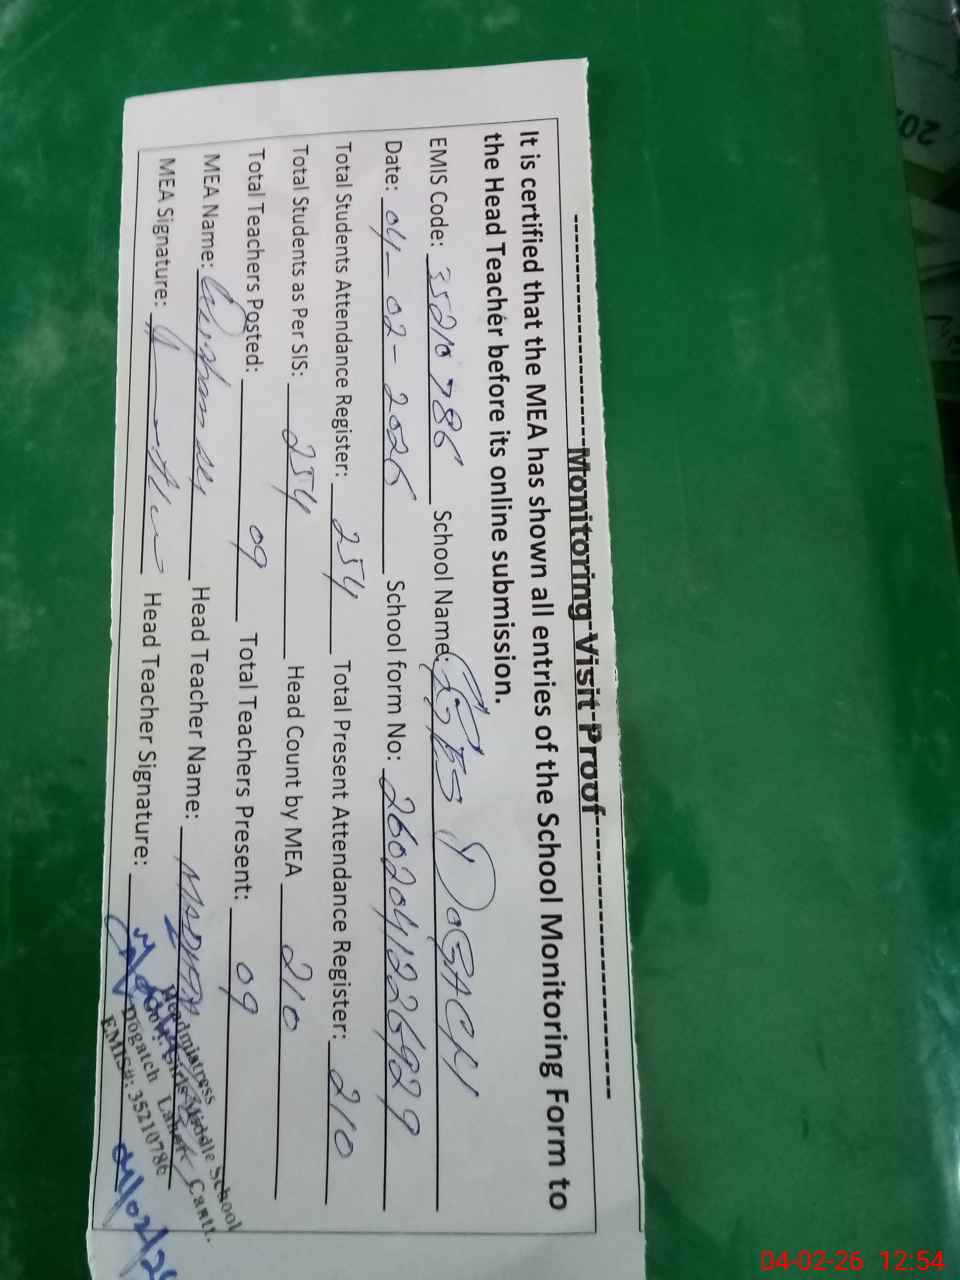 Monitoring Visit Proof
It is certified that the MEA has shown all entries of the School Monitoring Form to
the Head Teacher before its online submission.
EMIS Code: 35210786 School Name: DOGACH
Date: 04-02-2026 School form No: 2602041226929
Total Students Attendance Register: 254 Total Present Attendance Register: 210
Total Students as Per SIS: 254 Head Count by MEA 210
Total Teachers Posted: 09 Total Teachers Present: 09
MEA Name: Head Teacher Name:
MEA Signature: Head Teacher Signature:
Headmistress
Govt. Girls Middle School
Dogatch Lahore Cantt.
EMIS#: 35210786
04/02/26
202
04-02-26 12:54